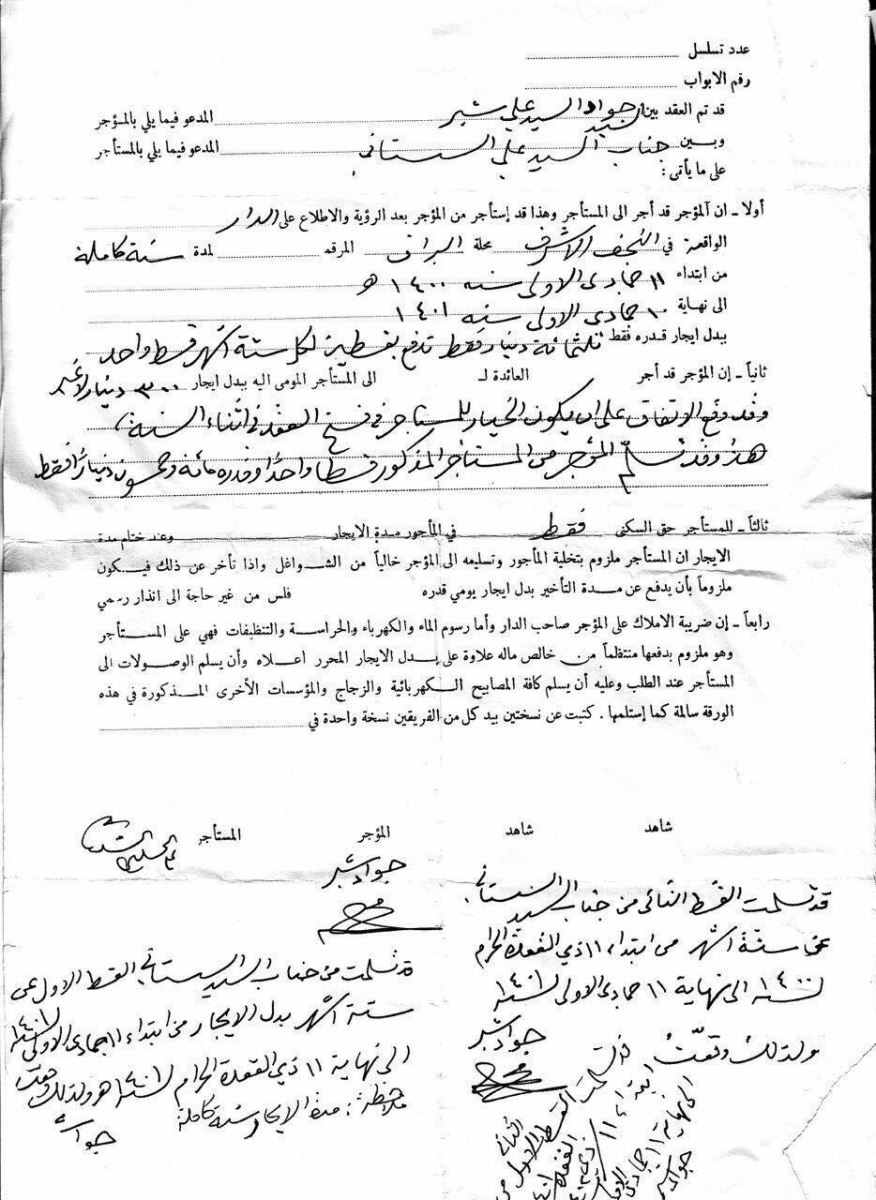 عدد تسلسل
رقم الابواب
قد تم العقد بين السيد جواد السيد علي شبر المدعو فيما يلي بالمؤجر
وبين جناب السيد علي السستاني المدعو فيما يلي بالمستأجر
على ما يأتى :
أولا ـ ان المؤجر قد أجر الى المستأجر وهذا قد إستأجر من المؤجر بعد الرؤية والاطلاع على الدار
الواقعة في النجف الاشرف محلة البراق المرقه لمدة سنة كاملة
من ابتداء ١١ جمادى الاولى سنه ١٤٠٠ هـ
الى نهاية ١٠ جمادى الاولى سنه ١٤٠١
ببدل ايجار قدره فقط ثلثمائة دينار فقط تدفع بقسطين لكل ستة أشهر قسط واحد
ثانياً ـ إن المؤجر قد أجر العائدة لـ الى المستأجر المومى اليه ببدل ايجار ٣٠٠ دينار لا غير
وقد وقع الاتفاق على ان يكون الخيار للمستاجر في فسخ العقد في اثناء السنة
هذا وقد تسلّم المؤجر من المستأجر المذكور قسطا واحداً وقدره مائة وخمسون ديناراً فقط
ثالثاً ـ للمستأجر حق السكنى فقط في المأجور مدة الايجار وعند ختام مدة
الايجار ان المستأجر ملزوم بتخلية المأجور وتسليمه الى المؤجر خالياً من الشواغل واذا تأخر عن ذلك فيكون
ملزوماً بأن يدفع عن مدة التأخير بدل ايجار يومي قدره فلس من غير حاجة الى انذار رسمي
رابعاً ـ إن ضريبة الاملاك على المؤجر صاحب الدار وأما رسوم الماء والكهرباء والحراسة والتنظيفات فهي على المستأجر
وهو ملزوم بدفعها منتظماً من خالص ماله علاوة على بدل الايجار المحرر أعلاه وأن يسلم الوصولات الى
المستأجر عند الطلب وعليه أن يسلم كافة المصابيح الكهربائية والزجاج والمؤسسات الأخرى المذكورة في هذه
الورقة سالمة كما إستلمها . كتبت عن نسختين بيد كل من الفريقين نسخة واحدة في
شاهد شاهد المؤجر المستأجر
جواد شبر
قد تسلمت القسط الثاني من جناب السيد السيستاني
عن ستة اشهر من ابتداء ١١ ذي القعدة الحرام
لسنة ١٤٠٠ الى نهاية ١١ جمادى الاولى لسنة ١٤٠١
ولذلك وقعّتُ
جواد شبر
قد تسلمت من جناب السيد السيستاني القسط الاول عن
ستة أشهر بدل الايجار من ابتداء ١١ جمادى الاولى لسنة ١٤٠١
الى نهاية ١١ ذي القعدة الحرام لسنة ١٤٠١ هـ ولذلك وقعت
ملاحظة : مدة الايجار سنة كاملة
جواد
قد تسلمت القسط
ابتداء ١١
الى نهاية ١١ جمادى
جواد شبر